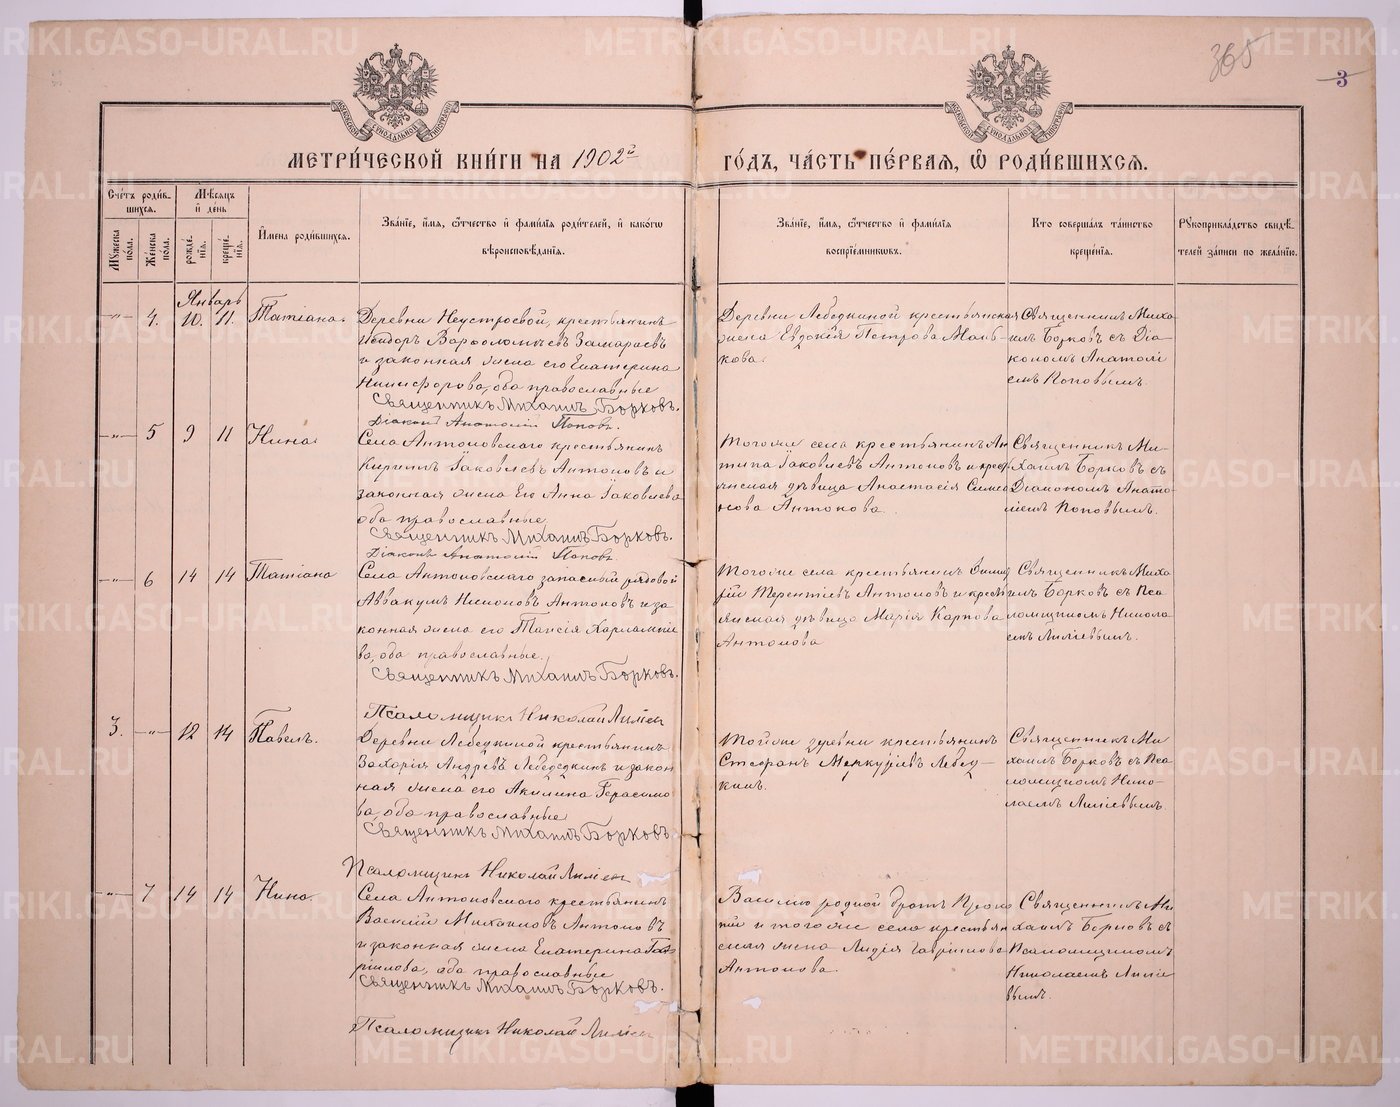 365
3
МЕТРИ́ЧЕСКОЙ КНИ́ГИ НА 1902й
ГО́ДЪ, ЧА́СТЬ ПЕ́РВАЯ, Ѡ҆ РОДИ́ВШИХСЯ.
Сче́тъ роди́в-
шихся.
Мꙋжеска по́ла.
Же́нска по́ла.
Мѣ́сяцъ
и҆ день
рожде́-
нїя.
креще́-
нїя.
И҆мена роди́вшихся.
Зва́нїе, и҆́мя, ѻ҆́тчество и҆ фами́лїя роди́телей, и҆ како́гѡ
вѣроисповѣ́данїя.
Зва́нїе, и҆́мя, ѻ҆́тчество и҆ фами́лїя
воспрїе́мникѡвъ.
Кто соверша́лъ та́инство
креще́нїя.
Рꙋкоприкла́дство свидѣ́-
телей за́писи по жела́нїю.
Январь
-"- 4. 10. 11. Татіана.
Деревни Неустроевой, крестьянинъ
Исидоръ Варѳоломѣевъ Замараевъ
и законная жена его Екатерина
Никифорова, оба православные
Священникъ Михаилъ Борковъ.
Діаконъ Анатолій Поповъ.
Деревни Лебедкиной крестьянская
жена Евдокія Петрова Мань-
кова.
Священникъ Миха-
илъ Борковъ съ Діа-
кономъ Анатолі-
емъ Поповымъ.
-"- 5 9 11 Нина.
Села Антоновскаго крестьянинъ
Кириллъ Іаковлевъ Антоновъ и
законная жена Его Анна Іаковлева
оба православные
Священникъ Михаилъ Борковъ.
Діаконъ Анатолій Поповъ
Того же села крестьянинъ Ан
типа Іаковлевъ Антоновъ и крест
янская дѣвица Анастасія Симео
нова Антонова.
Священникъ Ми-
хаилъ Борковъ съ
Діакономъ Анато-
ліемъ Поповымъ.
-"- 6 14 14 Татіана
Села Антоновскаго запасный рядовой
Аввакумъ Никоновъ Антоновъ и за-
конная жена его Таисія Харлампіе
ва, оба православные.
Священникъ Михаилъ Борковъ.
Псаломщикъ Николай
Того же села крестьянинъ
Терентіевъ Антоновъ и кресть
янская дѣвица Марія Карпова
Антонова
Священникъ Миха-
илъ Борковъ съ Пса
ломщикомъ Никола
емъ
3. -"- 12 14 Павелъ.
Деревни Лебедкиной крестьянинъ
Захарія Андрѣевъ Лебедкинъ и закон
ная жена его Акилина Герасимо
ва, оба православные
Священникъ Михаилъ Борковъ
Псаломщикъ Николай
Той же деревни крестьянинъ
Стефанъ Меркурьевъ Лебед-
кинъ.
Священникъ Ми
хаилъ Борковъ съ Пса
ломщикомъ Нико-
лаемъ
-"- 7 14 14 Нина.
Села Антоновскаго крестьянинъ
Василій Михаиловъ Антоновъ
и законная жена Екатерина Гав
риилова, оба православные
Священникъ Михаилъ Борковъ.
Псаломщикъ Николай
Василію родной братъ
и того же села крестьян
ская жена Лидія Гавріилова
Антонова.
Священникъ Ми
хаилъ Борковъ съ
Псаломщикомъ
Николаемъ
METRIKI.GASO-URAL.RU